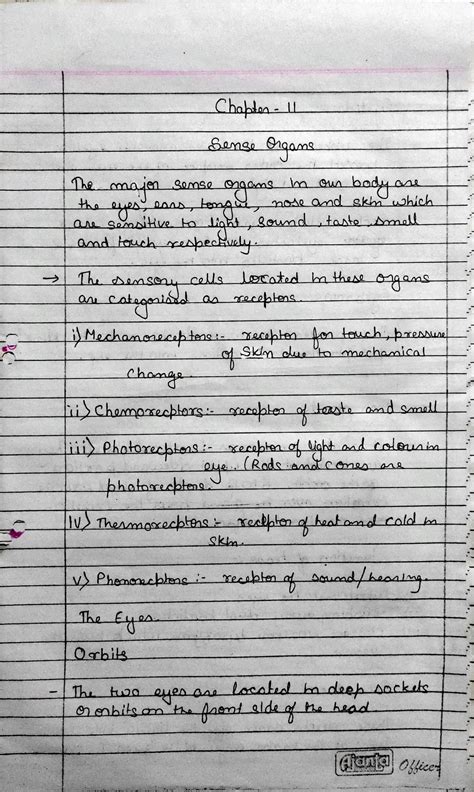 Chapter - 11
Sense Organs
The major sense organs in our body are
the eyes, ears, tongue, nose and skin which
are sensitive to light, sound, taste, smell
and touch respectively.
→ The sensory cells located in these organs
are categorised as receptors.
i) Mechanoreceptors:- receptor for touch, pressure
of skin due to mechanical
change.
ii) Chemorecptors:- receptor of taste and smell
iii) Photorecptors:- receptor of light and colour in
eye. (Rods and cones are
photorecptors.
iv) Thermorecptors:- receptor of heat and cold in
skin.
v) Phonorecptors:- receptor of sound/hearing.
The Eyes.
Orbits
- The two eyes are located in deep sockets
or orbits on the front side of the head
Ajanta Officer